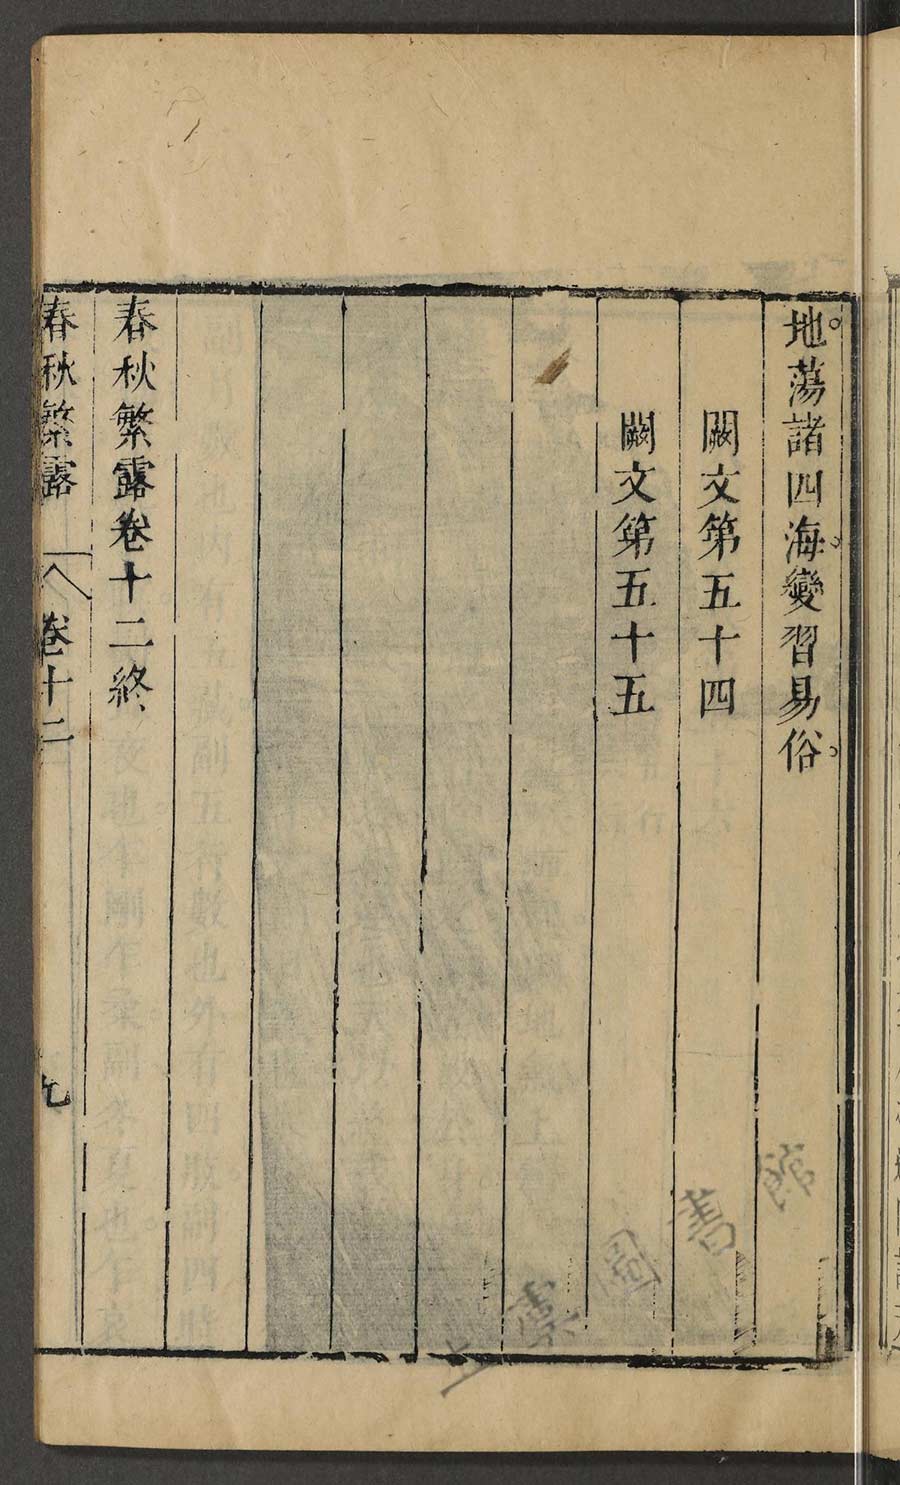 地蕩諸四海變習易俗
闕文第五十四
闕文第五十五
春秋繁露卷十二終
春秋繁露 卷十二 九